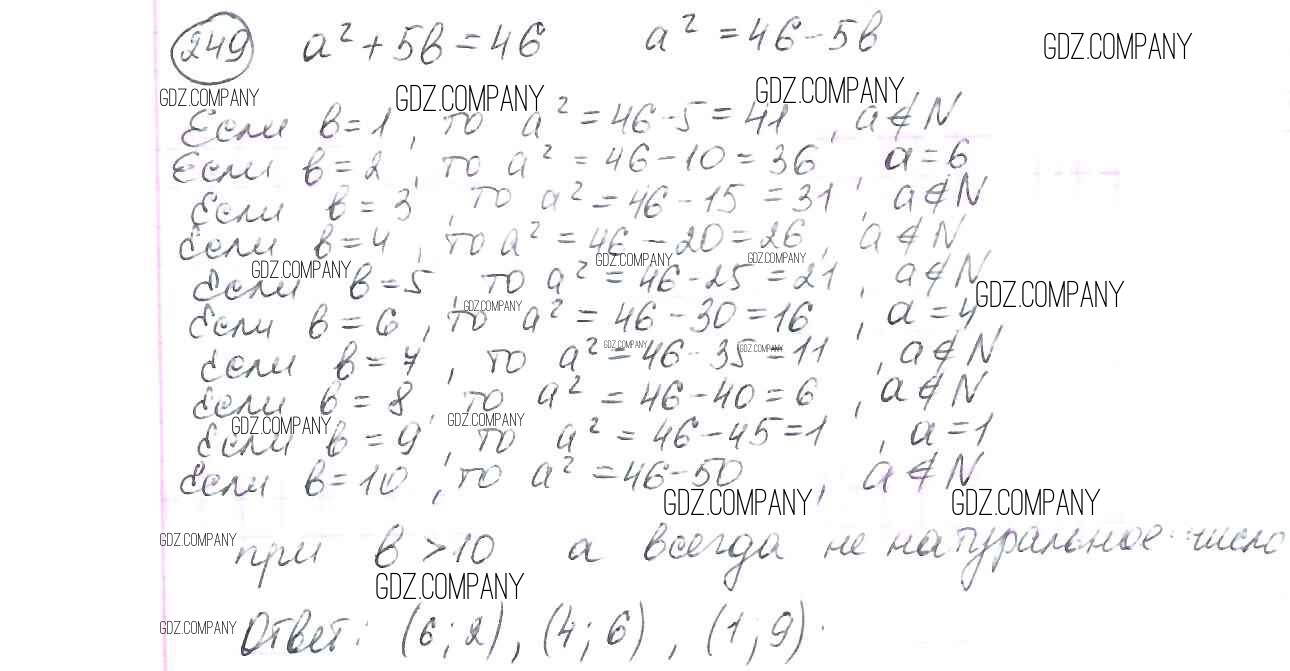 249 a² + 5в = 46 a² = 46 - 5в GDZ.COMPANY
GDZ.COMPANY GDZ.COMPANY GDZ.COMPANY
Если в = 1, то a² = 46 - 5 = 41, a ∉ N
Если в = 2, то a² = 46 - 10 = 36, a = 6
Если в = 3, то a² = 46 - 15 = 31, a ∉ N
Если в = 4, то a² = 46 - 20 = 26, a ∉ N
GDZ.COMPANY GDZ.COMPANY GDZ.COMPANY
Если в = 5 то a² = 46 - 25 = 21, a ∉ N
GDZ.COMPANY GDZ.COMPANY
Если в = 6, то a² = 46 - 30 = 16, a = 4
GDZ.COMPANY GDZ.COMPANY
Если в = 7, то a² = 46 - 35 = 11, a ∉ N
Если в = 8, то a² = 46 - 40 = 6, a ∉ N
GDZ.COMPANY GDZ.COMPANY
Если в = 9, то a² = 46 - 45 = 1, a = 1
Если в = 10, то a² = 46 - 50, a ∉ N
GDZ.COMPANY GDZ.COMPANY
GDZ.COMPANY при в > 10 a всегда не натуральное число
GDZ.COMPANY
GDZ.COMPANY Ответ: (6; 2), (4; 6), (1; 9).